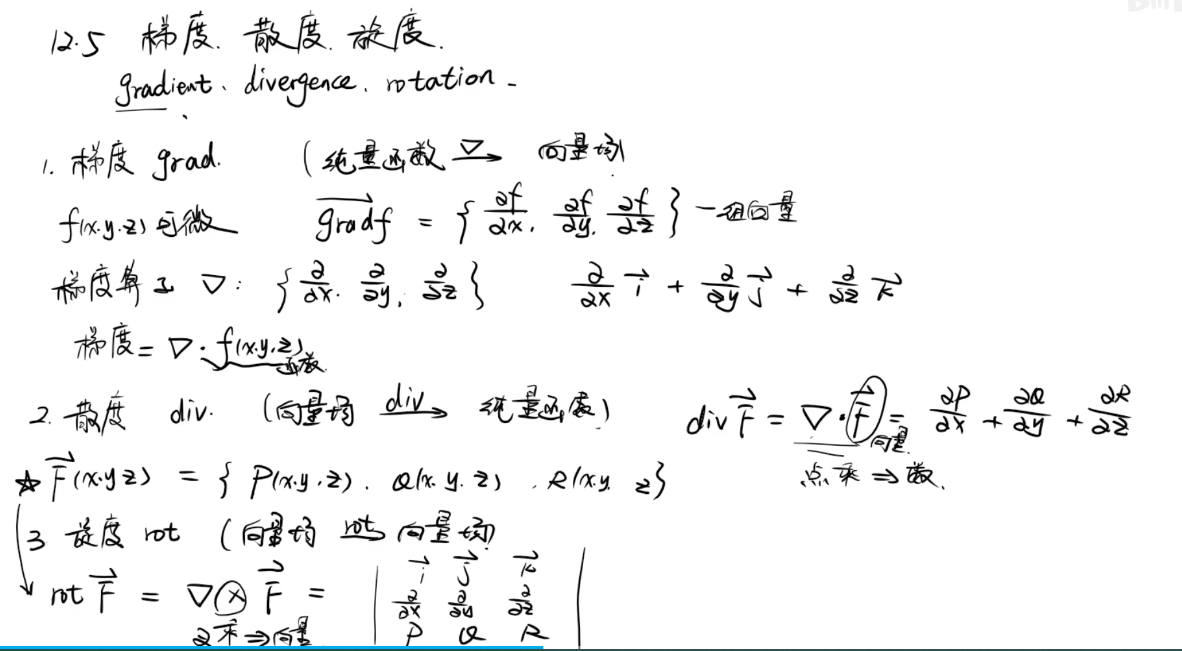 12.5 梯度. 散度. 旋度.
gradient. divergence. rotation -
1. 梯度 grad. (纯量函数 ∇→ 向量场)
f(x.y.z)可微 grad f = { ∂f/∂x, ∂f/∂y, ∂f/∂z } 一组向量
梯度算子 ∇: { ∂/∂x. ∂/∂y, ∂/∂z } ∂/∂x i + ∂/∂y j + ∂/∂z k
梯度 = ∇·f(x.y.z)
函数
2. 散度 div. (向量场 div→ 纯量函数) div F = ∇·F = ∂P/∂x + ∂Q/∂y + ∂R/∂z
向量
点乘 ⇒ 数.
☆ F(x.y z) = { P(x.y.z). Q(x. y. z) . R(x.y. z}
3 旋度 rot (向量场 rot→ 向量场)
rot F = ∇ × F = | i j k
∂/∂x ∂/∂y ∂/∂z
P Q R |
叉乘 ⇒ 向量